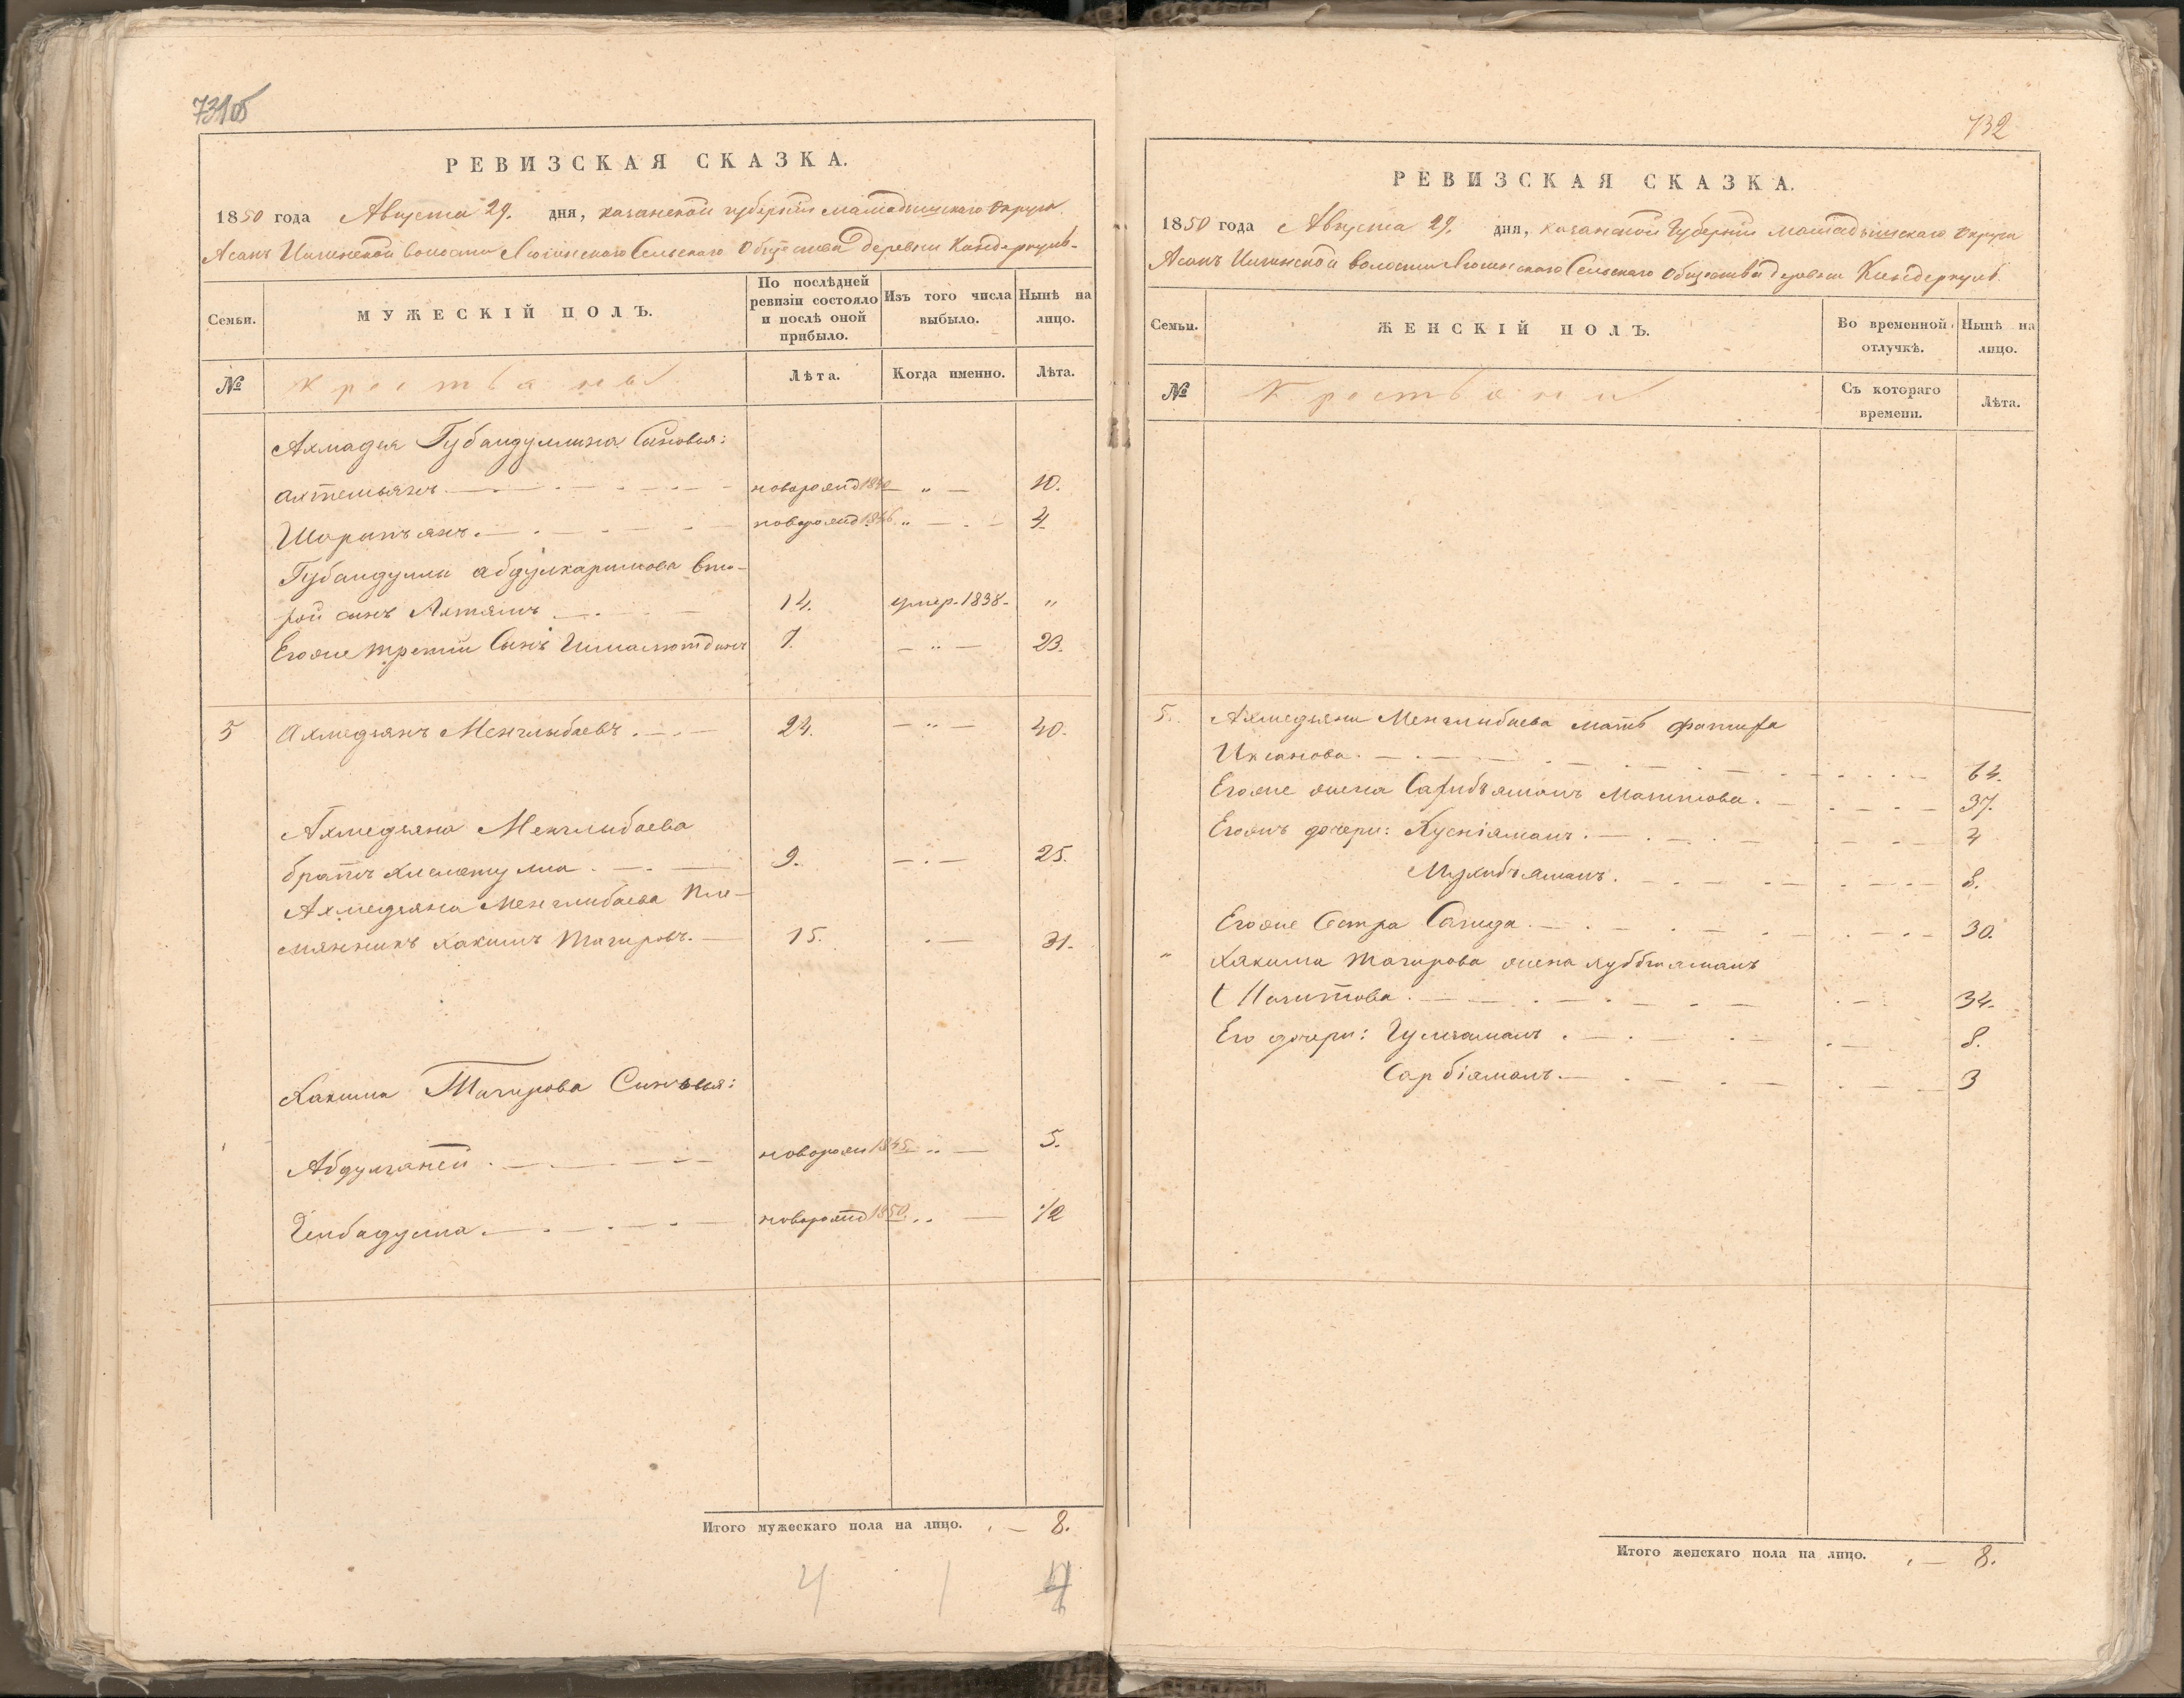 731об
РЕВИЗСКАЯ СКАЗКА.
1850 года Августа 29. дня, казанской губернии мамадышскаго округа
Асанъ Илгинской волости Сельскаго Общества деревни Киндеркуль
Семьи.
МУЖЕСКІЙ ПОЛЪ.
По послѣдней ревизіи состояло и послѣ оной прибыло.
Изъ того числа выбыло.
Нынѣ на лицо.
№ крестьяны Лѣта. Когда именно. Лѣта.
Ахмадея Губайдуллина Сыновья:
Ахтемьянъ новорожд 1840 — „ — 10.
Шарипъянъ новорожд 1846 „ — 4
Губайдуллы абдулкаримова вто-
рой сынъ Ахтямъ 14. умер. 1838 „
Егоже третий Сынъ 7. — „ — 23.
5 Ахмедьянъ Менглыбаевъ 24. — „ — 40.
Ахмедьяна Менглыбаева
братъ 9. — 25.
Ахмедьяна Менглибаева пле-
мянникъ Хакимъ Тагировъ 15. — 31.
Хакима Тагирова Сыновья:
Абдулганей новорож 1845 „ — 5.
новорожд 1850 „ — 1/2
Итого мужескаго пола на лицо. 8.
4 1
732
РЕВИЗСКАЯ СКАЗКА.
1850 года Августа 29. дня, казанской Губернии мамадышскаго округа
Асанъ Илгинской волости Сельскаго Общества деревни Киндеркуль
Семьи.
ЖЕНСКІЙ ПОЛЪ.
Во временной отлучкѣ.
Нынѣ на лицо.
№ Крестьяны Съ котораго времени. Лѣта.
5. Ахмедьяна Менглибаева мать
Иксанова. 64.
Егоже жена Магитова. 37.
Егожъ дочери: Хусніямалъ. 4
8.
Егоже Сестра Сагида. 30.
„ Хакима Тагирова жена
Магитова. 34.
Его дочери: Гулчамалъ. 8.
Сарбіямалъ. 3
Итого женскаго пола на лицо. 8.